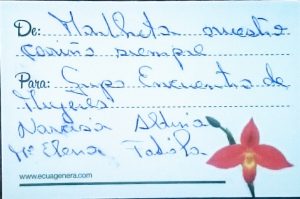 De: Martheta nuestro
cariño siempre
Para: Grupo Encuentro de
Mujeres
Narcisa Aldina
Mª Elena Fabiola
www.ecuagenera.com